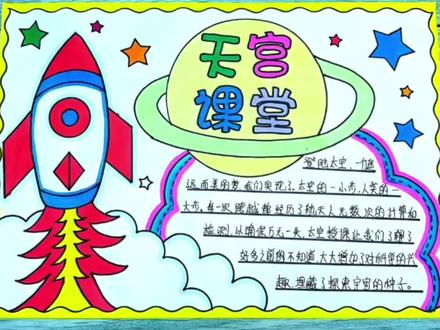 天宫
课堂
登陆太空,一个遥
远而美的梦,我们实现了,太空的一小步,人类的一
大步,每一次腾越都经历了航天人无数次的计算和
检测,以确保万无一失,太空授课让我们了解了
好多之前所不知道,大大增加了对科学的兴
趣,埋藏了探索宇宙的种子。